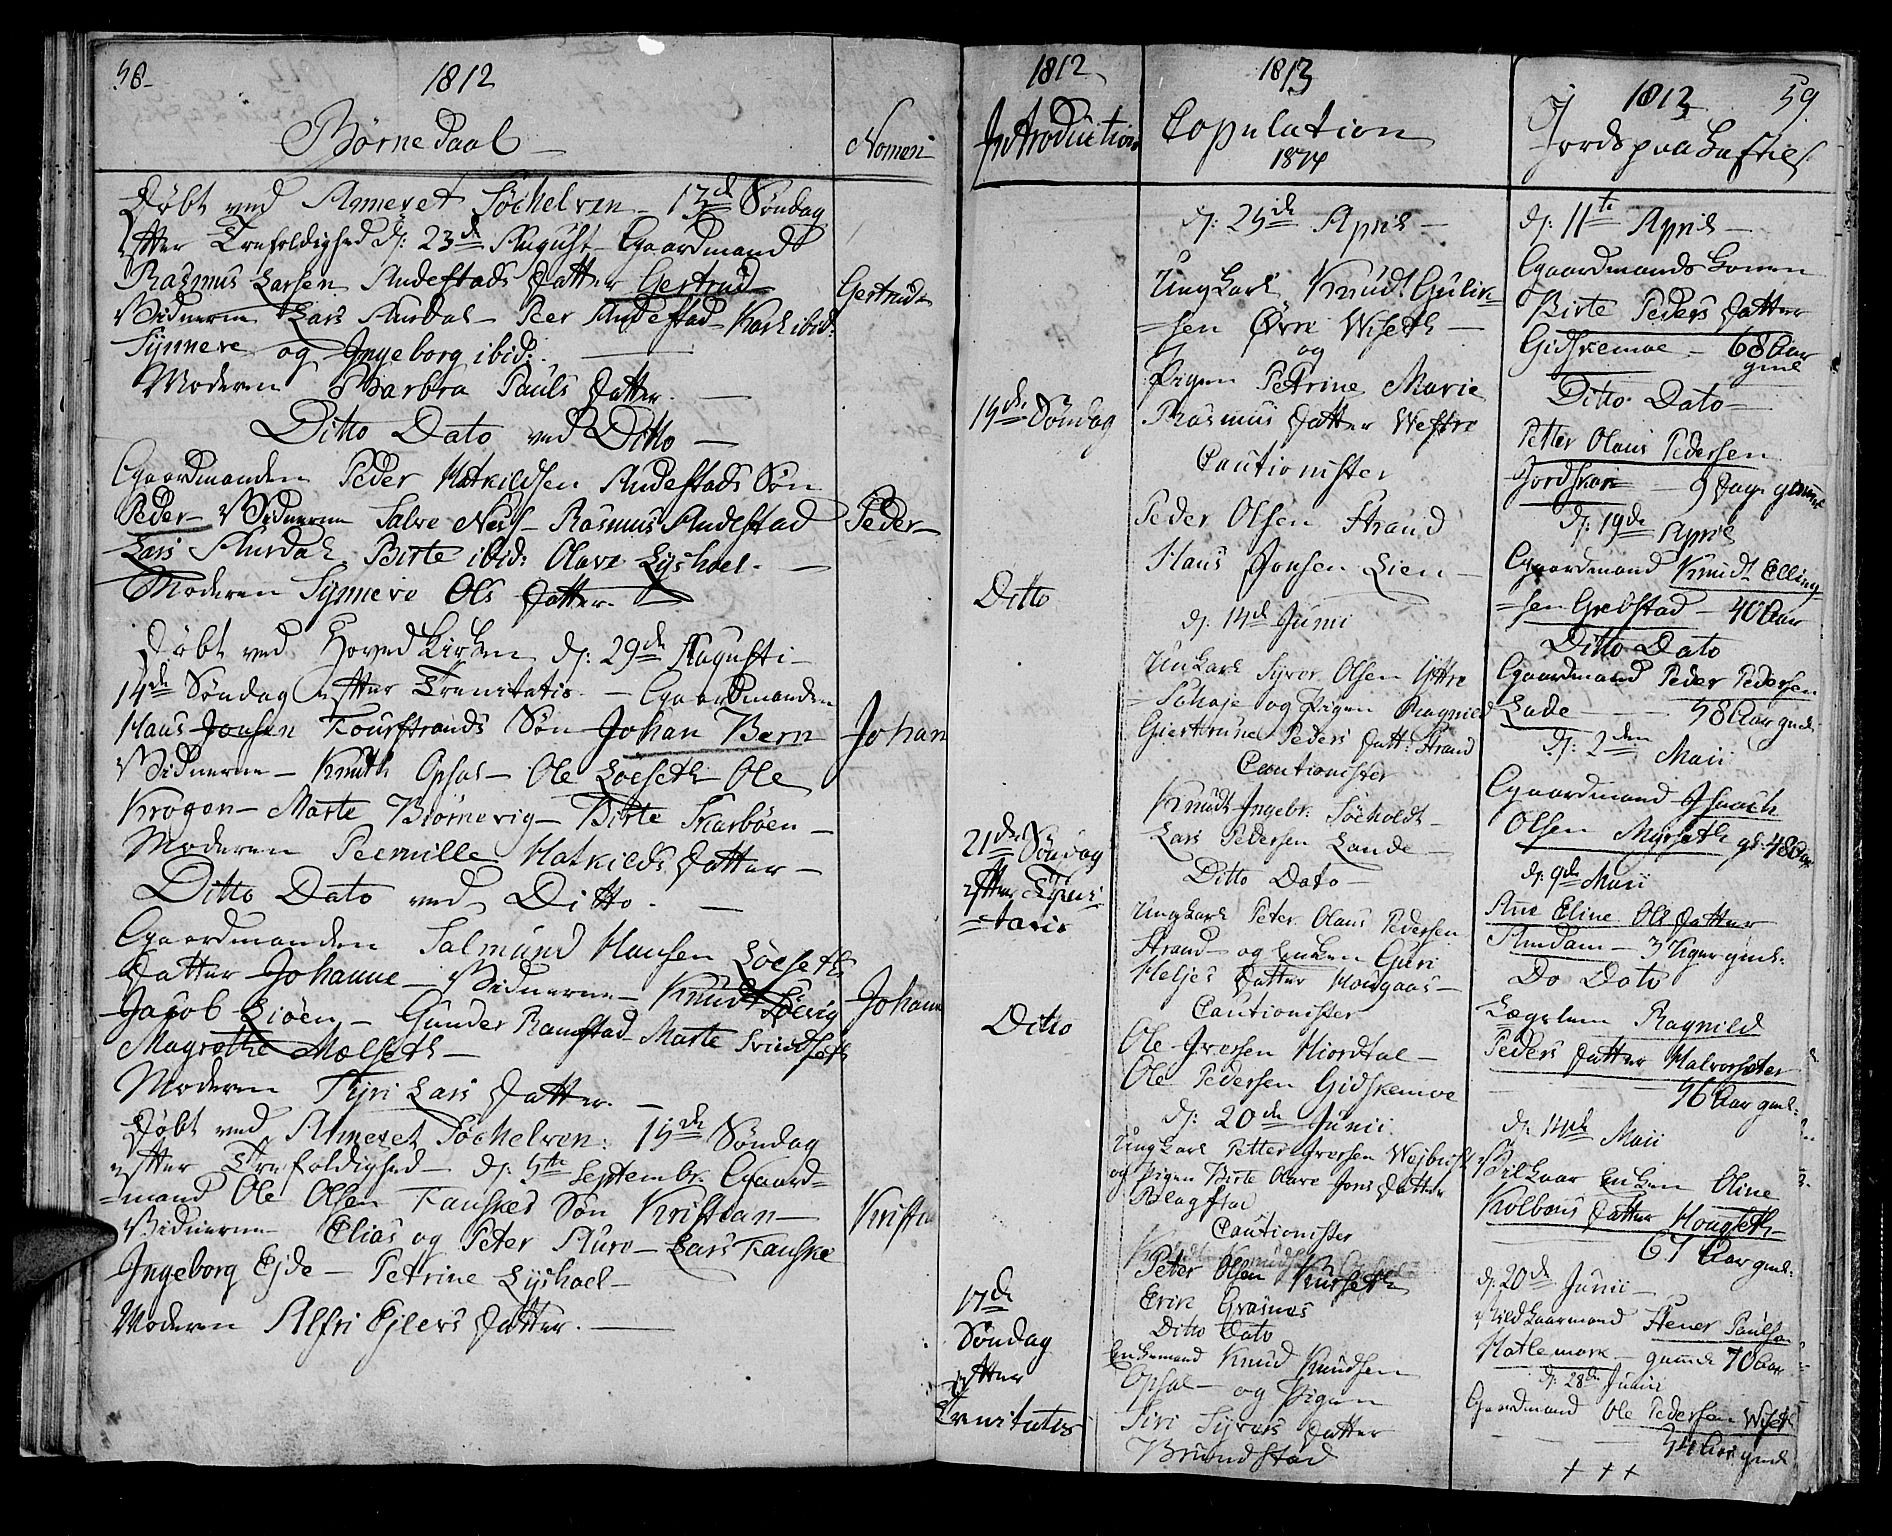 58.
1812
Børne Daab
Nomen
Døbt ved Ameret Søchelven 13de Søndag
efter Trefoldighed d: 23de August Gaardmand
Rasmus Larsen Andestads Datter Gertrud
Gertrud
Vidnerne Lars Aursdal Peer Andestad Kari ibid:
Synneve og Ingeborg ibid:
Moderen Barbra Pauls Datter.
Ditto Dato ved Ditto
Gaardmanden Peder Hatkildsen Andestads Søn
Peder Vidnerne Salve Rasmus Andestad
Peder
Lars Aursdal Birte ibid: Olave Lyshoel.
Moderen Synneve Ols Datter.
Døbt ved Hoved Kirken d: 29de Augusti
14de Søndag efter Trenitatis. Gaardmanden
Hans Jonsen Fourstrands Søn Johan Bern
Johan
Vidnerne Knuth Opsal Ole Løeseth Ole
Krogen Marte Biørnevig Birte Skarbøen
Moderen Peernille Hatkilds Datter
Ditto Dato ved Ditto.
Gaardmanden Salmund Hansen Løeseth
Datter Johanne Vidnerne Knud Søevig
Johanne
Jacob Liøen Gunder Ramstad Marte Svindseth
Magrethe Mælseth
Moderen Siri Lars Datter.
Døbt ved Ameret Søchelven: 15de Søndag
efter Trefoldighed d: 5te Septembr. Gaard=
=mand Ole Olsen Fauskes Søn Kristian
Kristia
Vidnerne Elias og Peter Aure Lars Fauske
Ingeborg Ejde Petrine Lyshoel
Moderen Alfri Ejlers Datter.
1812
Introduction
15de Søndag
Ditto
21de Søndag
efter Treni
=tatis
Ditto
17de
Søndag
efter
Trenitatis
1813
Copulation
1814
d: 25de April
Ung Karl Knudt Gulik=
=sen Øvre Wiseth
og
Pigen Petrine Marie
Rasmus Datter Westre
Cautionister
Peder Olsen Strand
Hans Jonsen Lien
d: 14de Junii
Ungkarl Syver Olsen Yttre
Schaje og Pigen Ragnild
Giertrune Peders Datt: Strand
Cautionister
Knudt Ingebr. Søeholdt
Lars Pedersen Lande
Ditto Dato
Ungkarl Peter Olaus Pedersen
Strand og Enken Guri
Heljes Datter Hougaas
Cautionister
Ole Iversen Hiordtal
Ole Pedersen Gidskemoe
d: 20de Junii
Ungkarl Petter Iversen Wejbust
og Pigen Birte Olave Jons Datter
Blagstad
Cautionister
Peter Olsen Kurseth
Erik Grasnes
Ditto Dato
Enkemand Knud Knudsen
Opsal og Pigen
Siri Syvers Datter
Brundstad
1813
59
Jords paa Kastels
d: 11te April
Gaardmands Konen
Birte Peders Datter
Gidskemoe 68 Aar
gml
Ditto Dato
Petter Olaus Pedersen
9 Dage gammel
d: 19de April
Gaardmand Knudt Elling
=sen Grebstad 40 Aar
Ditto Dato
Gaardmand Peder Pedersen
Lade 58 Aar gml:
d: 2den Maii
Gaardmand Isaach
Olsen Myrseth gl: 48 Aar
d: 9de Maii
Ane Eline Ols Datter
Amdam 3 Uger gml.
Do Dato
Lægslem Ragnild
Peders Datter Halvorsæter
56 Aar gml:
d: 14de Maii
Vilkaar Enken Oline
Kolbens Datter Hougseth
67 Aar gml:
d: 20de Junii
Vilkaarmand Stener Paulsen
Hatlemark gamel 70 Aar
d: 28de Junii
Gaardmand Ole Pedersen Wiseth
54 Aar gml
+ + +